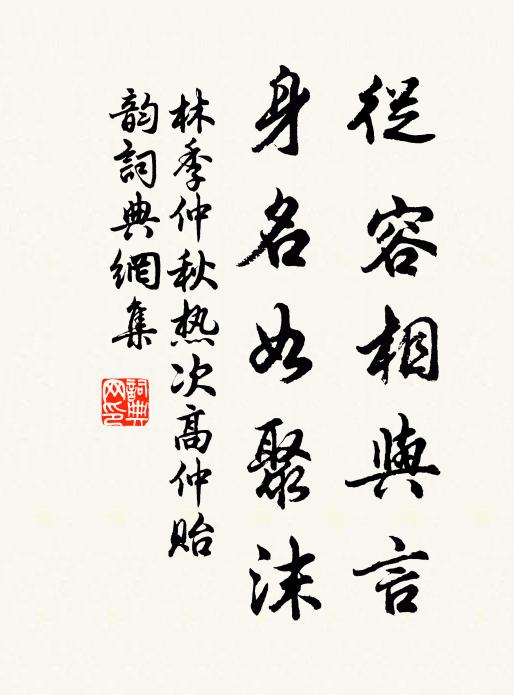 從容相與言
身名如聚沫
林季仲秋热次高仲貽
韵詞典網集
詞典
网印